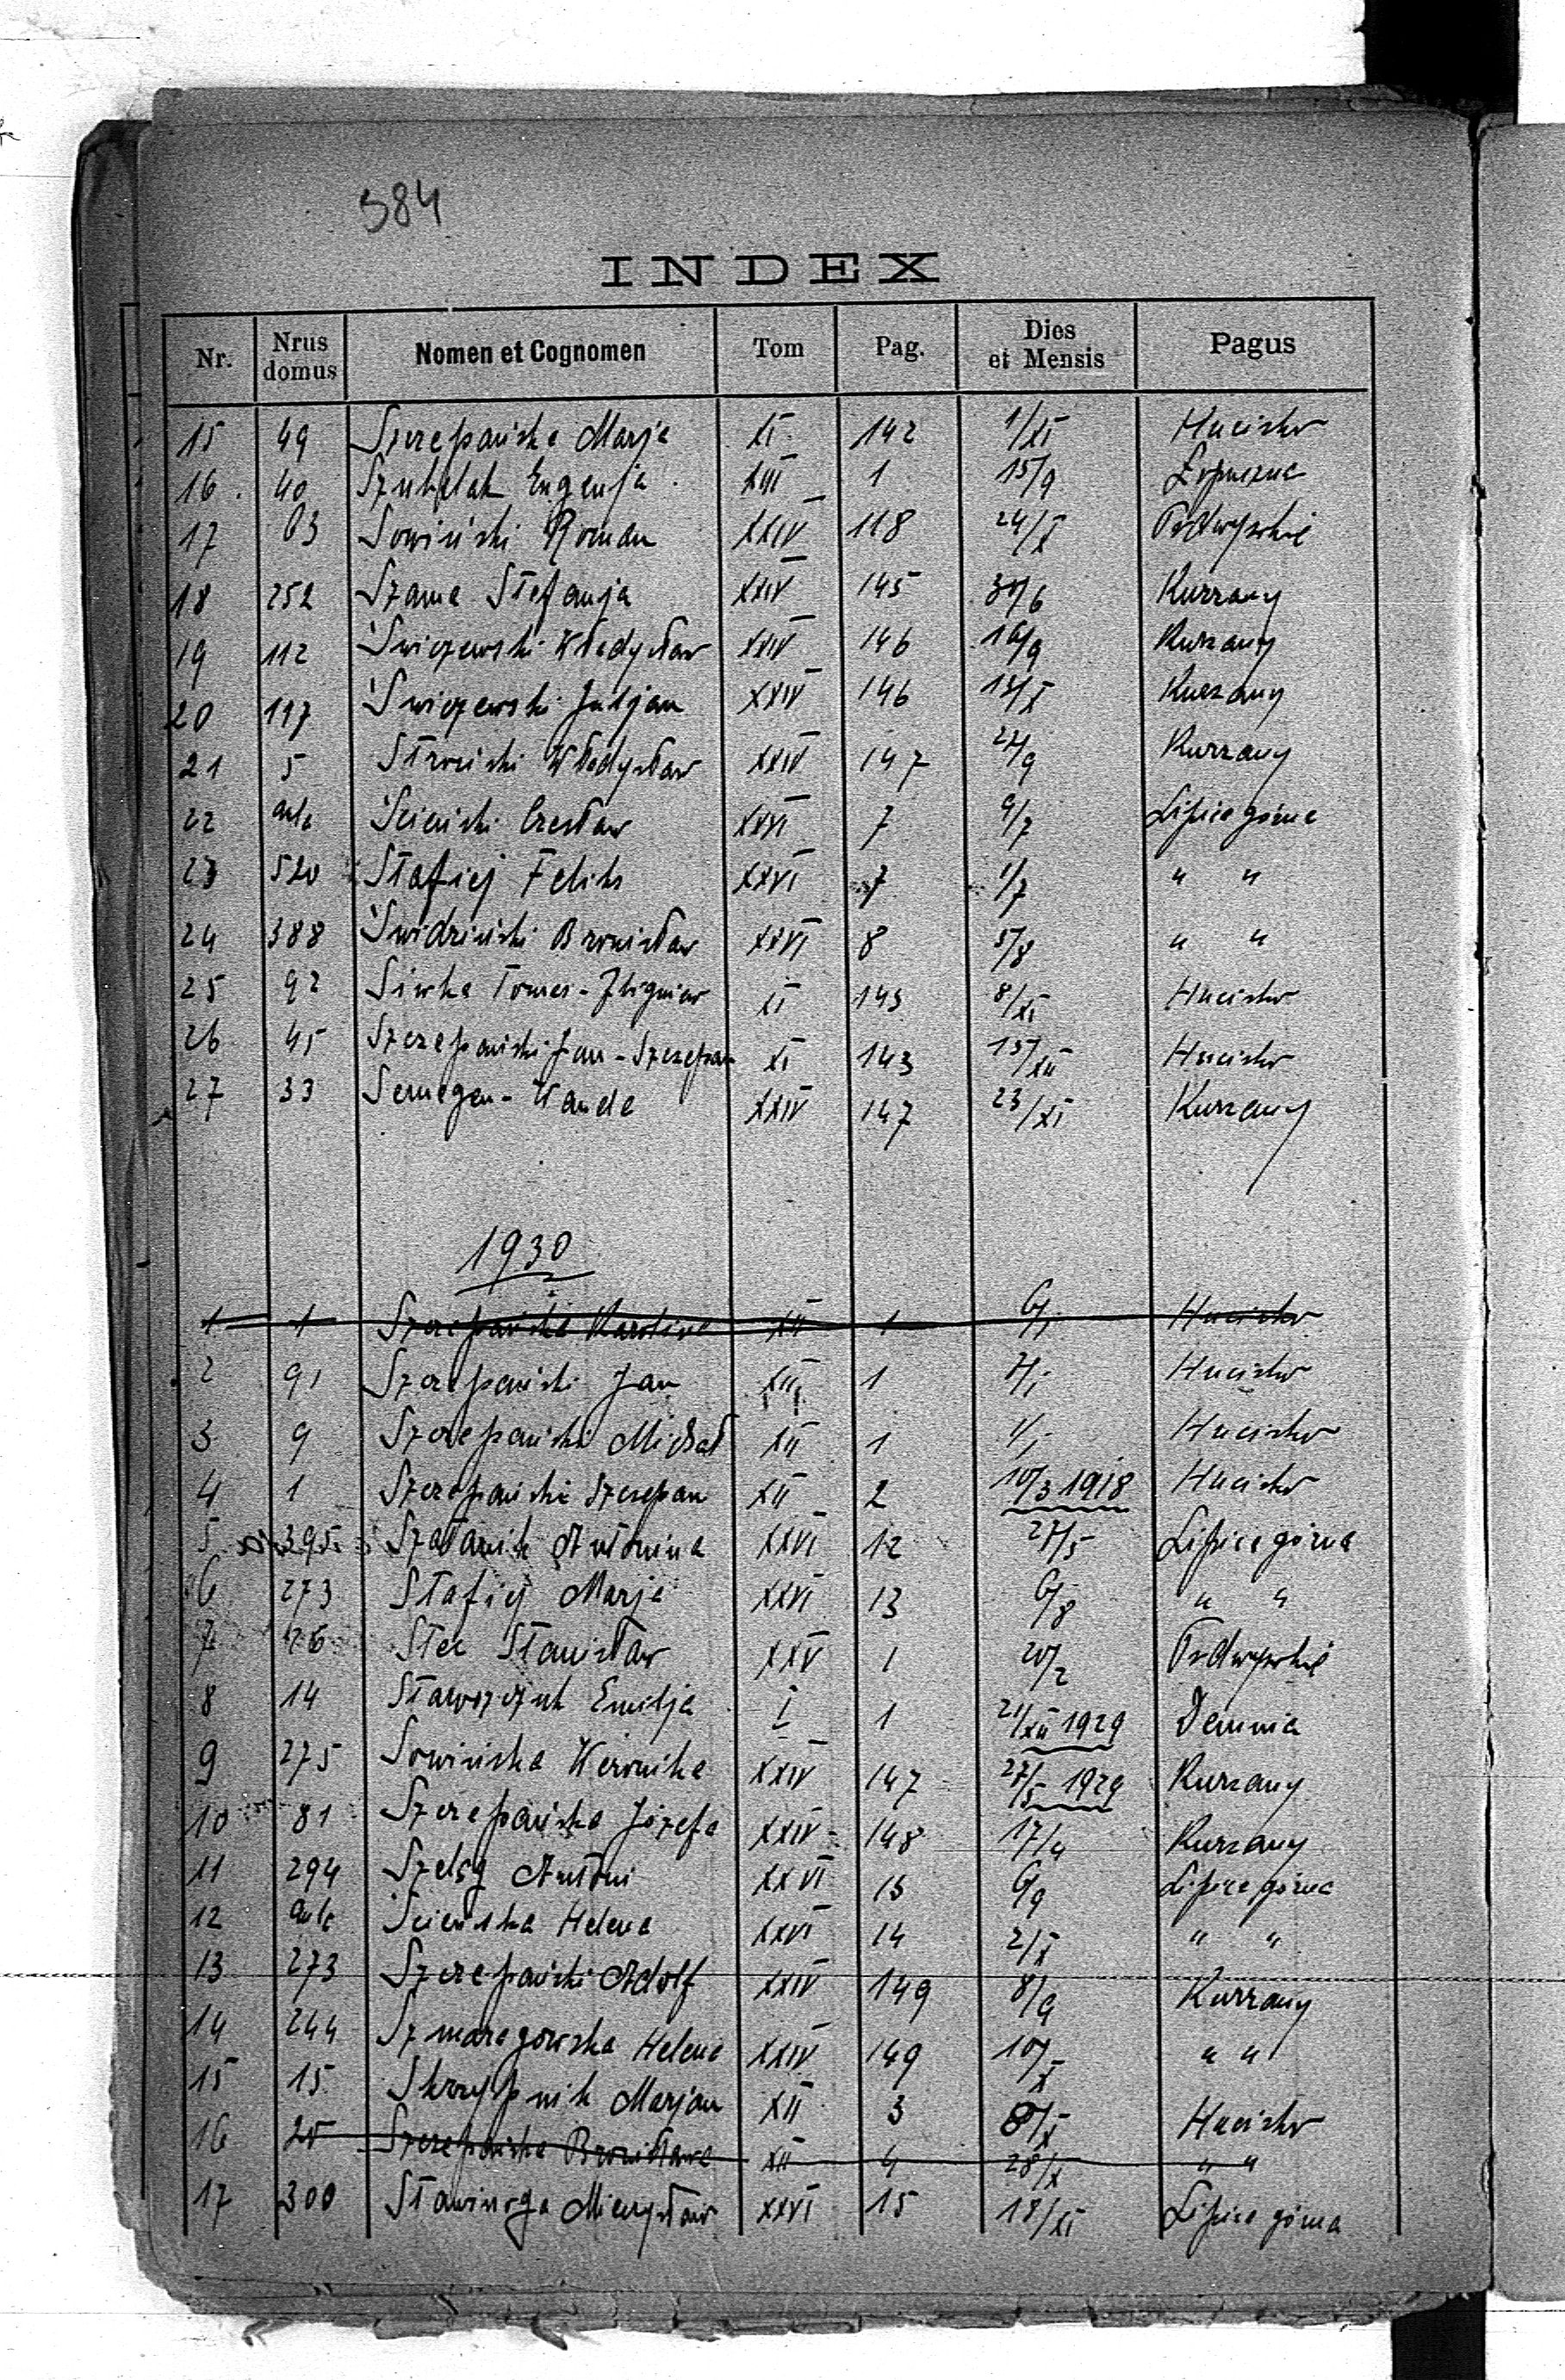 584
INDEX
Nr. Nrus domus Nomen et Cognomen Tom Pag. Dies et Mensis Pagus
15 49 Szczepańska Marja XI 142 1/XI Hucisko
16. 40 Eugenja XIII 1 15/9 Łopuszna
17 63 Sowiński Roman XXIV 118 24/X Podwysokie
18 252 Szama Stefanja XXIV 145 /6 Kurzany
19 112 Świżewski Władysław XXIV 146 16/9 Kurzany
20 117 Świżewski Juljan XXIV 146 12/X Kurzany
21 5 Stroński Władysław XXIV 147 22/9 Kurzany
22 Ścieński Czesław XXVI 7 9/7 Lipica górna
23 520 Stafiej Feliks XXVI 7 1/7 " "
24 388 Świdziński Bronisław XXVI 8 5/8 " "
25 92 Siwka Tomasz-Zbigniew XI 143 8/XI Hucisko
26 45 Szczepański Jan-Szczepan XI 143 15/XII Hucisko
27 33 Semegen-Wanda XXIV 147 23/XI Kurzany
1930
1 1 Szczepańska Karolina XII 1 6/1 Hucisko
2 91 Szczepański Jan XII 1 7/1 Hucisko
3 9 Szczepański Michał XII 1 1/1 Hucisko
4 1 Szczepański Szczepan XII 2 10/3 1918 Hucisko
5 395 Szatanik Antonina XXVI 12 27/5 Lipica górna
6 273 Stafiej Marja XXVI 13 6/8 " "
7 26 Stec Stanisław XXV 1 20/2 Podwysokie
8 14 Stawszczuk Emilja I 1 21/XII 1929 Demnia
9 275 Sowińska Weronika XXIV 147 27/5 1929 Kurzany
10 81 Szczepańska Józefa XXIV 148 17/4 Kurzany
11 294 Szeląg Antoni XXVI 13 6/9 Lipica górna
12 Ścieńska Helena XXVI 14 2/X " "
13 273 Szczepański Adolf XXIV 149 8/9 Kurzany
14 244 Szmaragowska Helena XXIV 149 10/X " "
15 15 Skrzypnik Marjan XII 3 8/X Hucisko
16 20 Szczepańska Bronisława XII 4 28/X " "
17 300 Mieczysław XXVI 15 18/XI Lipica górna